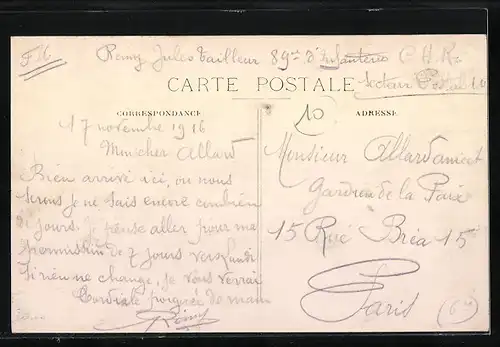 FM Remy Jules tailleur 89me d'Infanterie C.H.R.
CARTE POSTALE
Secteur Postal
CORRESPONDANCE
ADRESSE
10
17 novembre 1916
Mon cher Allard
Bien arrivé ici, ou nous
serons je ne sais encore combien
de jours. je pense aller pour ma
permission de 7 jours vers lundi
si rien ne change, je vous verrai
Cordiale poignée de main
Rémy
Monsieur Allard
Gardien de la Paix
15 Rue Bréa 15
Paris
(6me)